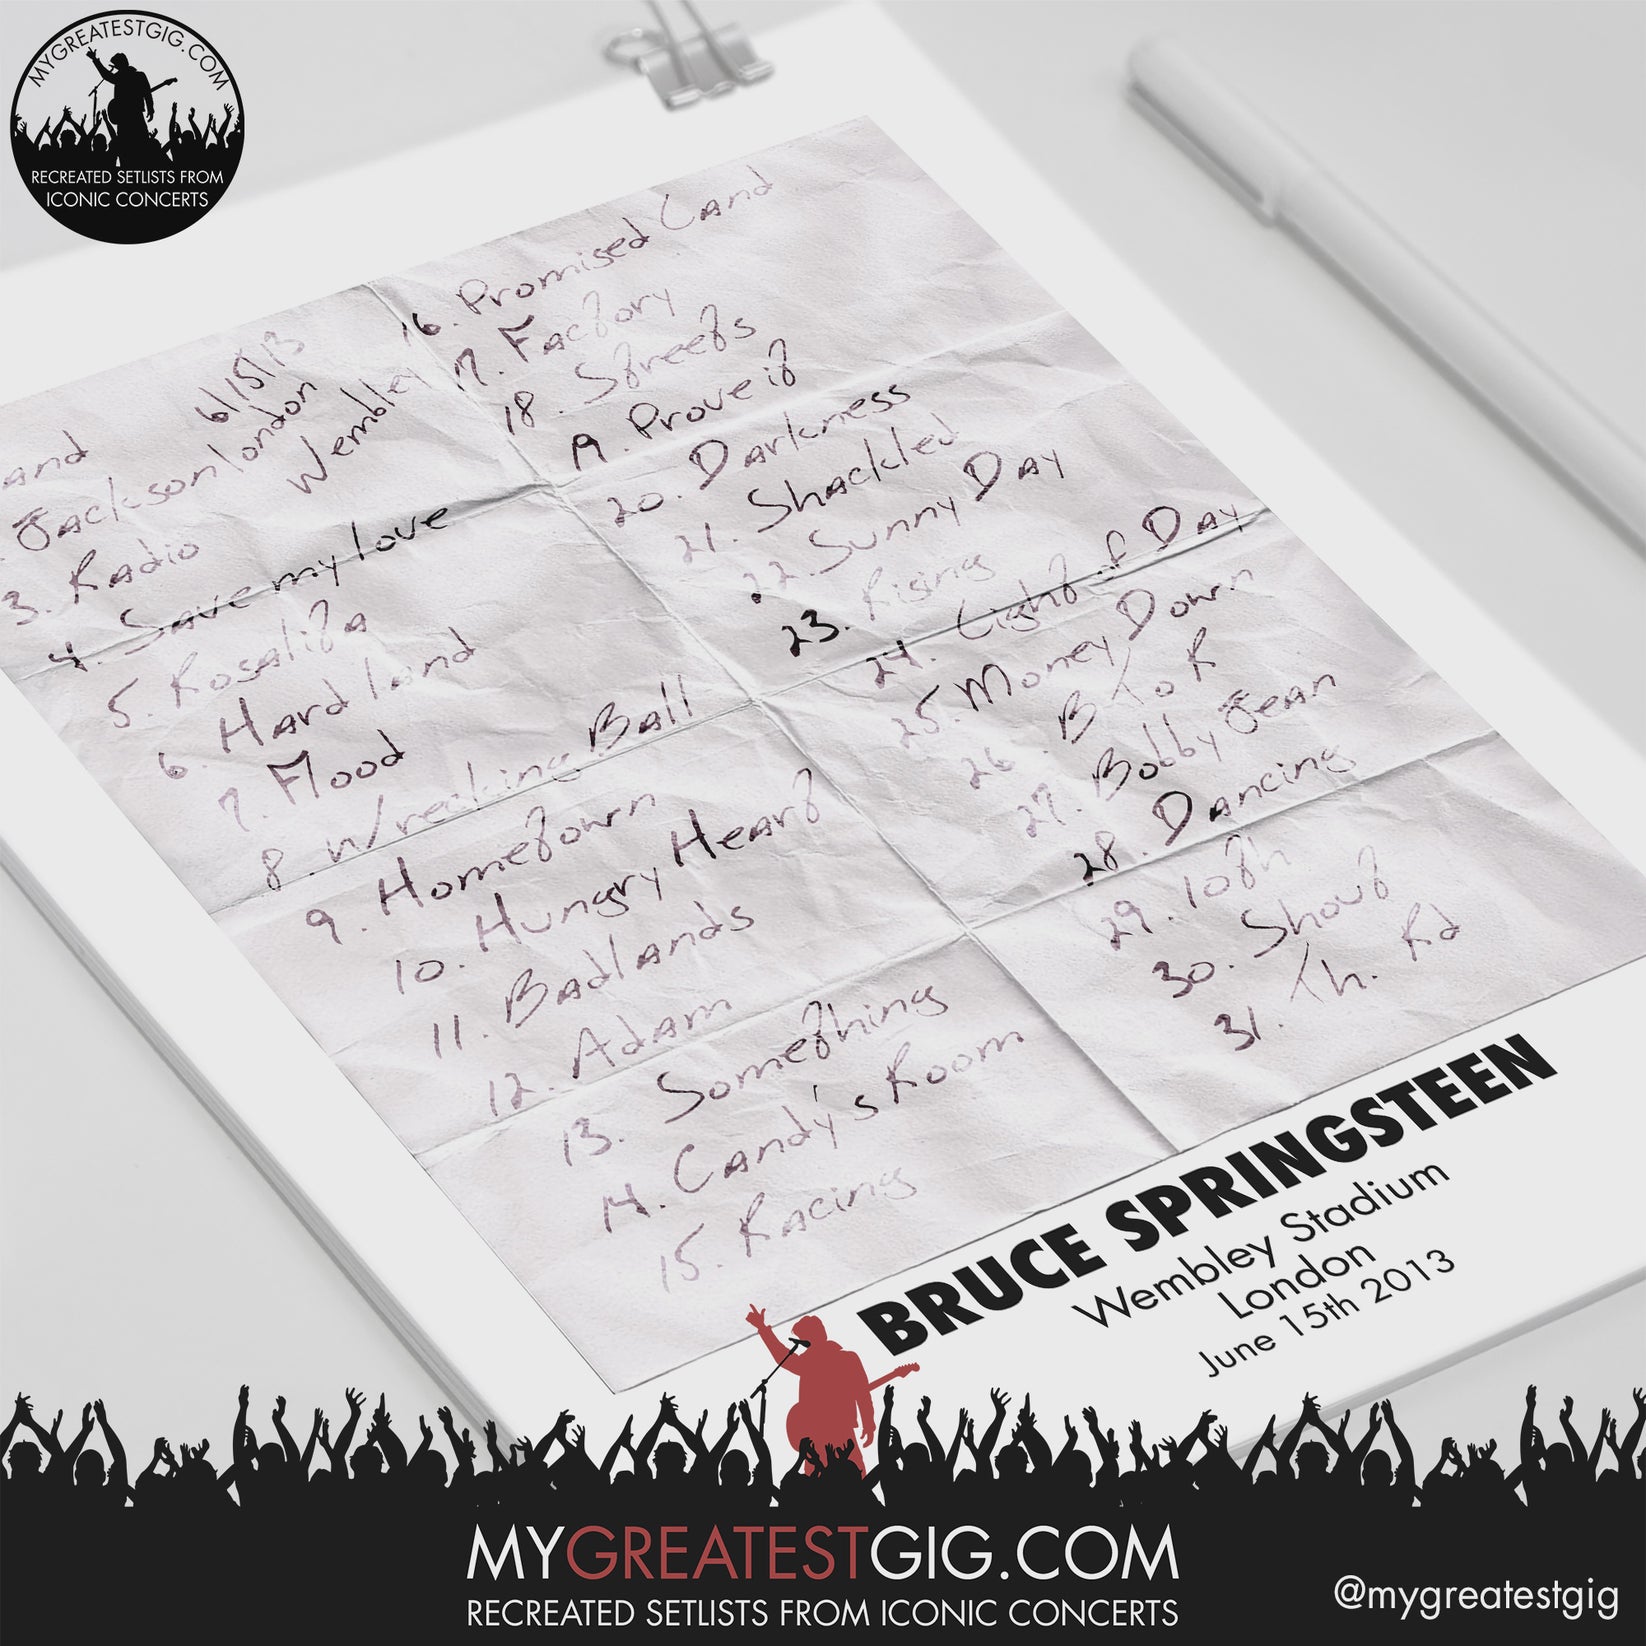 MYGREATESTGIG.COM
RECREATED SETLISTS FROM
ICONIC CONCERTS
6/15/13
london
Wembley
and
Jackson
3. Radio
4. Save my love
5. Rosalita
6. Hard land
7. Flood
8. Wrecking Ball
9. Hometown
10. Hungry Heart
11. Badlands
12. Adam
13. Something
14. Candy's Room
15. Racing
16. Promised Land
17. Factory
18. Streets
19. Prove it
20. Darkness
21. Shackled
22. Sunny Day
23. Rising
24. Light of Day
25. Money Down
26. B T o R
27. Bobby Jean
28. Dancing
29. 10th
30. Shout
31. Th. Rd
BRUCE SPRINGSTEEN
Wembley Stadium
London
June 15th 2013
MYGREATESTGIG.COM
RECREATED SETLISTS FROM ICONIC CONCERTS
@mygreatestgig